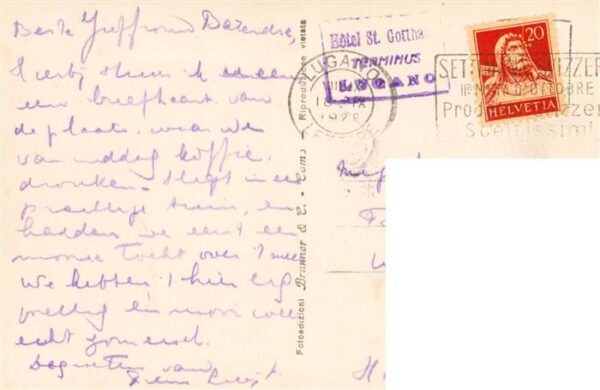 Beste Juffrouw Barendse,
Hierbij stuur ik U even
een briefkaart van
de plaats waar we
van middag koffie
dronken. 't ligt in een
prachtige tuin, en
hadden we eerst een
mooie tocht over 't meer
We hebben 't hier erg
prettig en mooi weer
echt zomersch.
begroeten van
Fotoedizioni Brunner & C. - Como - Riproduzione vietata
Hôtel St. Gottha
TERMINUS
LUGANO
LUGANO
HELVETIA
20
SET
IZZER
D'OTTOBRE
Prod
zzer
Sceltissimi